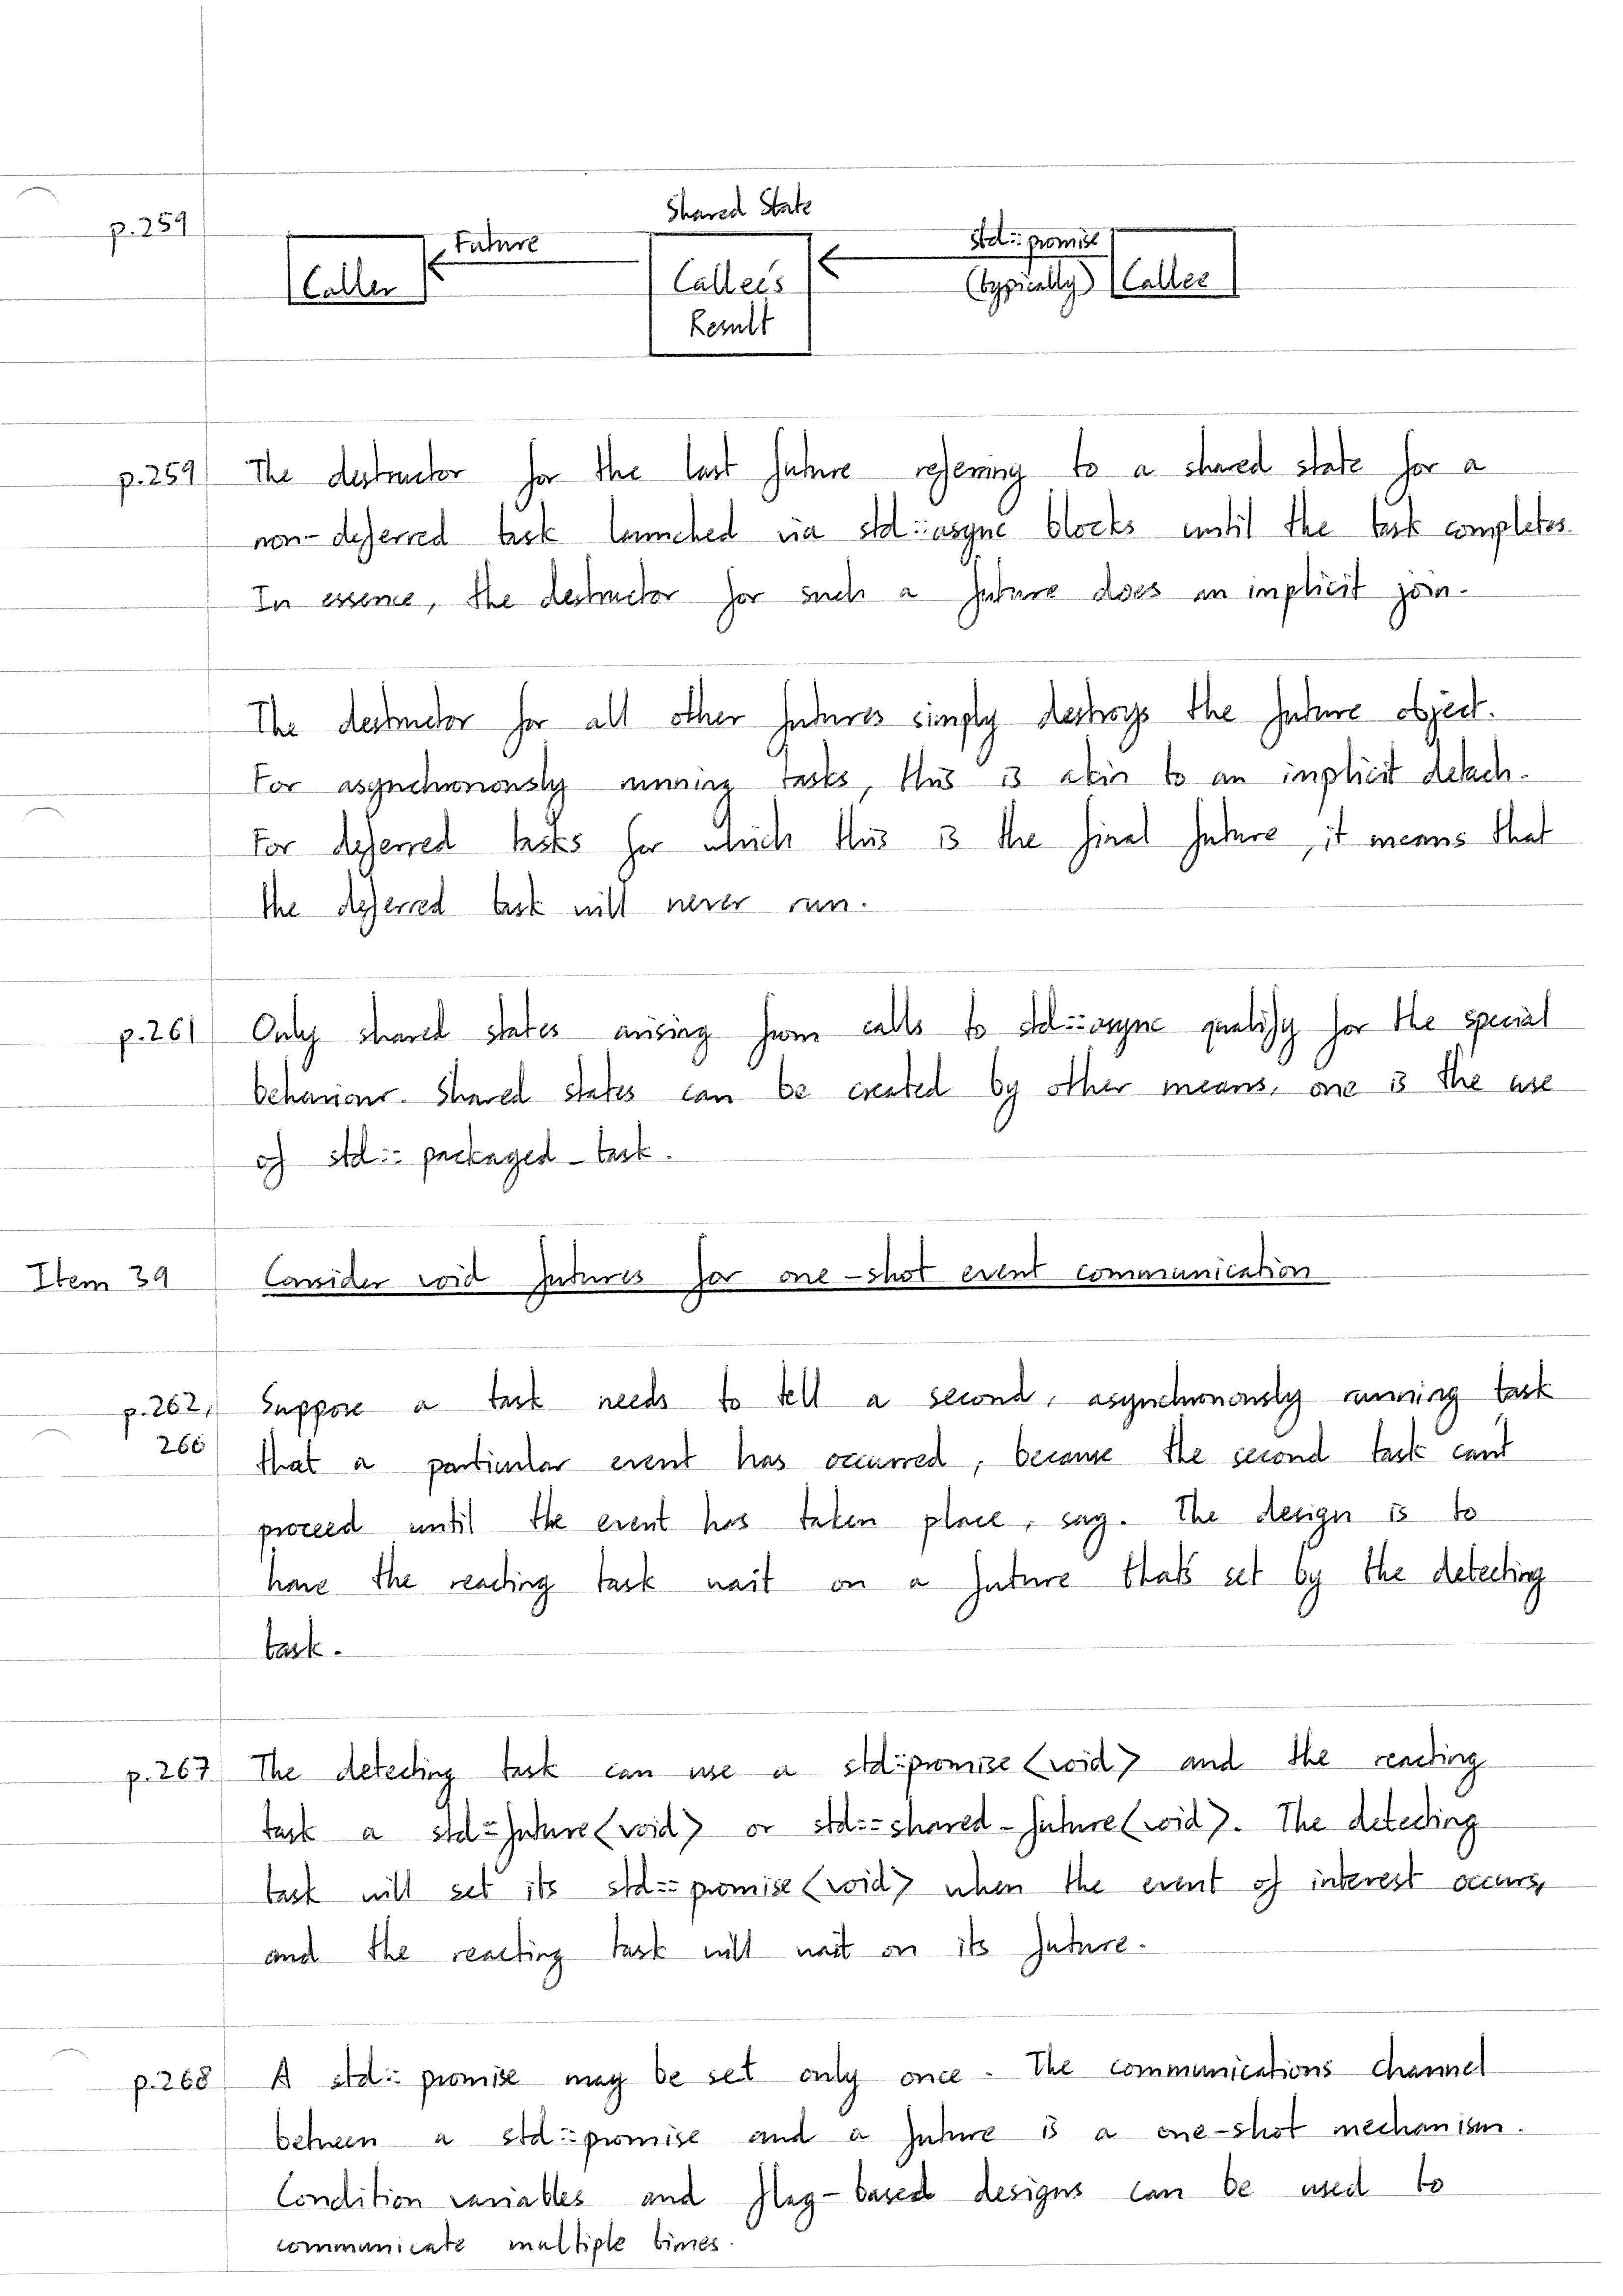 Shared State
p.259
Caller
Future
Callee's
Result
std::promise
(typically)
Callee
p.259 The destructor for the last future referring to a shared state for a
non-deferred task launched via std::async blocks until the task completes.
In essence, the destructor for such a future does an implicit join.
The destructor for all other futures simply destroys the future object.
For asynchronously running tasks, this is akin to an implicit detach.
For deferred tasks for which this is the final future, it means that
the deferred task will never run.
p.261 Only shared states arising from calls to std::async qualify for the special
behaviour. Shared states can be created by other means, one is the use
of std::packaged_task.
Item 39 Consider void futures for one-shot event communication
p.262, Suppose a task needs to tell a second, asynchronously running task
266 that a particular event has occurred, because the second task can't
proceed until the event has taken place, say. The design is to
have the reacting task wait on a future that's set by the detecting
task.
p.267 The detecting task can use a std::promise<void> and the reacting
task a std::future<void> or std::shared_future<void>. The detecting
task will set its std::promise<void> when the event of interest occurs,
and the reacting task will wait on its future.
p.268 A std::promise may be set only once. The communications channel
between a std::promise and a future is a one-shot mechanism.
Condition variables and flag-based designs can be used to
communicate multiple times.